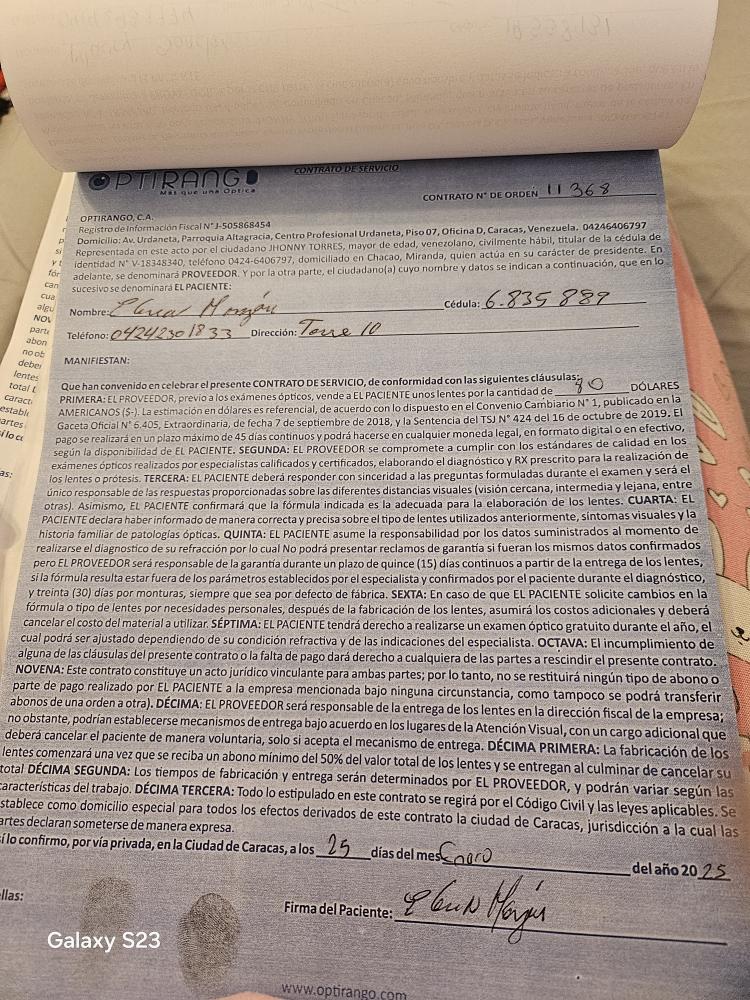 OPTIRANGO
Más que una Óptica
CONTRATO DE SERVICIO
CONTRATO N° DE ORDEN 11368
OPTIRANGO, C.A.
Registro de Información Fiscal N°J-505868454
Domicilio: Av. Urdaneta, Parroquia Altagracia, Centro Profesional Urdaneta, Piso 07, Oficina D, Caracas, Venezuela. 04246406797
Representada en este acto por el ciudadano JHONNY TORRES, mayor de edad, venezolano, civilmente hábil, titular de la cédula de
identidad N° V-18348340, teléfono 0424-6406797, domiciliado en Chacao, Miranda, quien actúa en su carácter de presidente. En
adelante, se denominará PROVEEDOR. Y por la otra parte, el ciudadano(a) cuyo nombre y datos se indican a continuación, que en lo
sucesivo se denominará EL PACIENTE:
Nombre: Cédula: 6.835889
Teléfono: 04242301833 Dirección: Torre 10
MANIFIESTAN:
Que han convenido en celebrar el presente CONTRATO DE SERVICIO, de conformidad con las siguientes cláusulas:
PRIMERA: EL PROVEEDOR, previo a los exámenes ópticos, vende a EL PACIENTE unos lentes por la cantidad de 80 DÓLARES
AMERICANOS ($-). La estimación en dólares es referencial, de acuerdo con lo dispuesto en el Convenio Cambiario N° 1, publicado en la
Gaceta Oficial N° 6.405, Extraordinaria, de fecha 7 de septiembre de 2018, y la Sentencia del TSJ N° 424 del 16 de octubre de 2019. El
pago se realizará en un plazo máximo de 45 días continuos y podrá hacerse en cualquier moneda legal, en formato digital o en efectivo,
según la disponibilidad de EL PACIENTE. SEGUNDA: EL PROVEEDOR se compromete a cumplir con los estándares de calidad en los
exámenes ópticos realizados por especialistas calificados y certificados, elaborando el diagnóstico y RX prescrito para la realización de
los lentes o prótesis. TERCERA: EL PACIENTE deberá responder con sinceridad a las preguntas formuladas durante el examen y será el
único responsable de las respuestas proporcionadas sobre las diferentes distancias visuales (visión cercana, intermedia y lejana, entre
otras). Asimismo, EL PACIENTE confirmará que la fórmula indicada es la adecuada para la elaboración de los lentes. CUARTA: EL
PACIENTE declara haber informado de manera correcta y precisa sobre el tipo de lentes utilizados anteriormente, síntomas visuales y la
historia familiar de patologías ópticas. QUINTA: EL PACIENTE asume la responsabilidad por los datos suministrados al momento de
realizarse el diagnostico de su refracción por lo cual No podrá presentar reclamos de garantía si fueran los mismos datos confirmados
pero EL PROVEEDOR será responsable de la garantía durante un plazo de quince (15) días continuos a partir de la entrega de los lentes,
si la fórmula resulta estar fuera de los parámetros establecidos por el especialista y confirmados por el paciente durante el diagnóstico,
y treinta (30) días por monturas, siempre que sea por defecto de fábrica. SEXTA: En caso de que EL PACIENTE solicite cambios en la
fórmula o tipo de lentes por necesidades personales, después de la fabricación de los lentes, asumirá los costos adicionales y deberá
cancelar el costo del material a utilizar. SÉPTIMA: EL PACIENTE tendrá derecho a realizarse un examen óptico gratuito durante el año, el
cual podrá ser ajustado dependiendo de su condición refractiva y de las indicaciones del especialista. OCTAVA: El incumplimiento de
alguna de las cláusulas del presente contrato o la falta de pago dará derecho a cualquiera de las partes a rescindir el presente contrato.
NOVENA: Este contrato constituye un acto jurídico vinculante para ambas partes; por lo tanto, no se restituirá ningún tipo de abono o
parte de pago realizado por EL PACIENTE a la empresa mencionada bajo ninguna circunstancia, como tampoco se podrá transferir
abonos de una orden a otra). DÉCIMA: EL PROVEEDOR será responsable de la entrega de los lentes en la dirección fiscal de la empresa;
no obstante, podrían establecerse mecanismos de entrega bajo acuerdo en los lugares de la Atención Visual, con un cargo adicional que
deberá cancelar el paciente de manera voluntaria, solo si acepta el mecanismo de entrega. DÉCIMA PRIMERA: La fabricación de los
lentes comenzará una vez que se reciba un abono mínimo del 50% del valor total de los lentes y se entregan al culminar de cancelar su
total DÉCIMA SEGUNDA: Los tiempos de fabricación y entrega serán determinados por EL PROVEEDOR, y podrán variar según las
características del trabajo. DÉCIMA TERCERA: Todo lo estipulado en este contrato se regirá por el Código Civil y las leyes aplicables. Se
establece como domicilio especial para todos los efectos derivados de este contrato la ciudad de Caracas, jurisdicción a la cual las
artes declaran someterse de manera expresa.
sí lo confirmo, por vía privada, en la Ciudad de Caracas, a los 25 días del mes Enero del año 2025
llas:
Firma del Paciente:
Galaxy S23
www.optirango.com